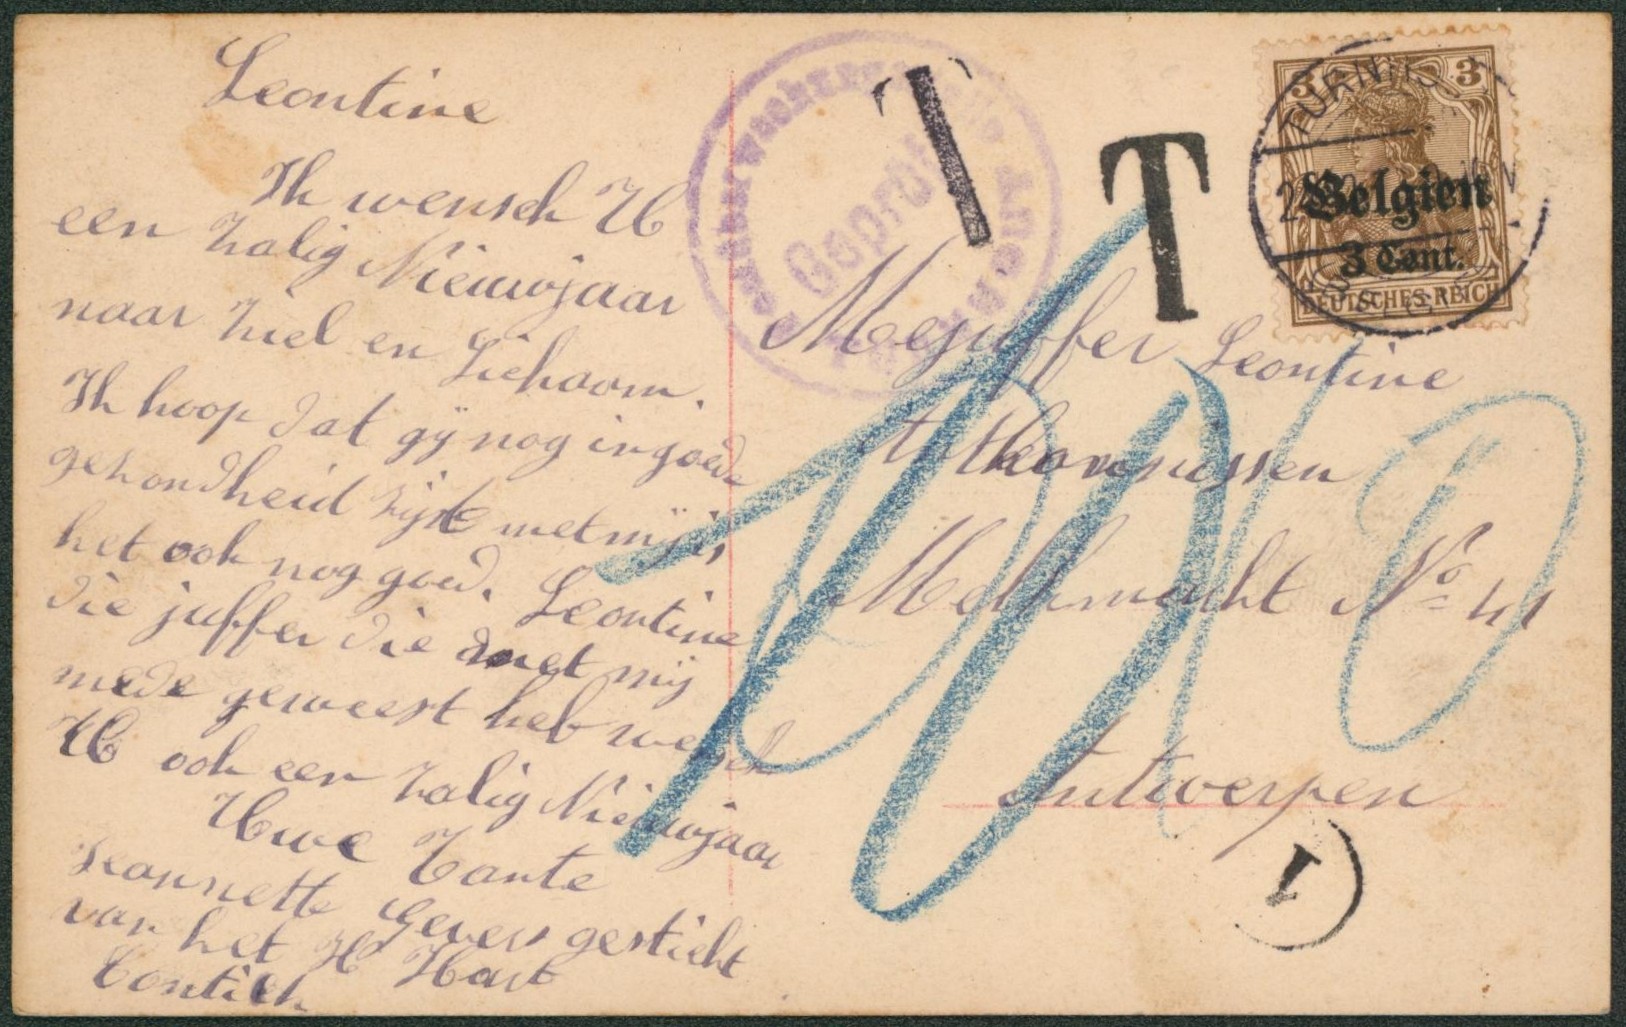 Leontine
Ik wensch U
een zalig Nieuwjaar
naar ziel en Lichaam.
Ik hoop dat gij nog in goede
gezondheid zijt met mij is
het ook nog goed. Leontine
die juffer die met mij
mede geweest heb wensch
U ook een zalig Nieuwjaar
Uwe Tante
Jeannette Gevers gesticht
van het H Hart
Contich
Geprüft
T
T
TURNH
3 3
Belgien
3 Cent.
DEUTSCHES REICH
Mejuffer Leontine
Melkmarkt No 41
Antwerpen
10
1